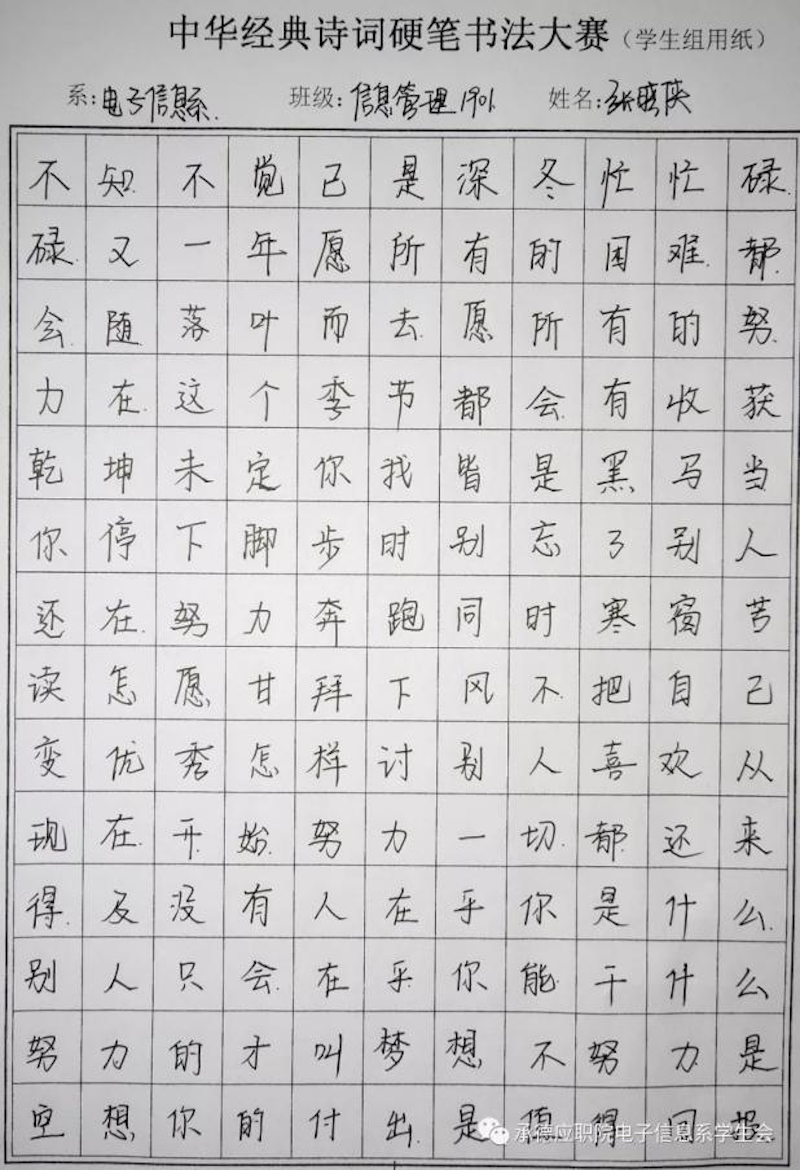 中华经典诗词硬笔书法大赛（学生组用纸）
系：电子信息系 班级：信息管理1901 姓名：张晓侠
不知不觉已是深冬忙忙碌
碌又一年愿所有的困难都
会随落叶而去愿所有的努
力在这个季节都会有收获
乾坤未定你我皆是黑马当
你停下脚步时别忘了别人
还在努力奔跑同时寒窗苦
读怎愿甘拜下风不把自己
变优秀怎样讨别人喜欢从
现在开始努力一切都还来
得及没有人在乎你是什么
别人只会在乎你能干什么
努力的才叫梦想不努力是
空想你的付出是值得回报
承德应职院电子信息系学生会